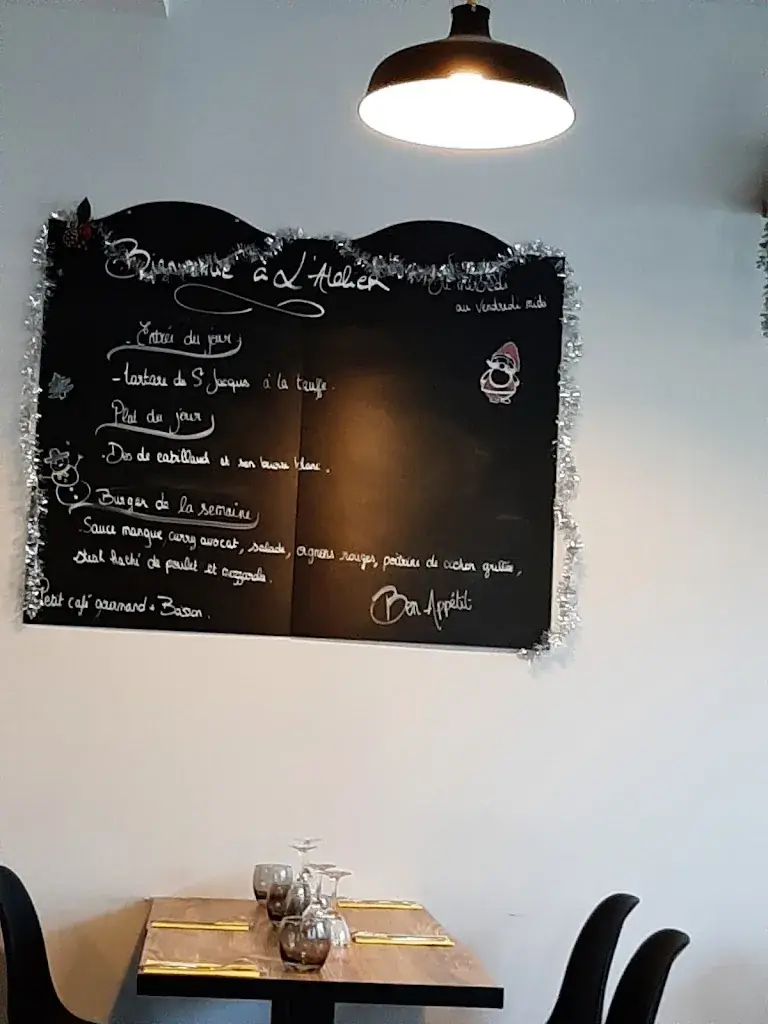 Bienvenue à L'Atelier
au vendredi midi
Entrée du jour
- tartare de S Jacques à la truffe.
Plat du jour
. Dos de cabillaud et son beurre blanc.
Burger de la semaine
Sauce mangue curry avocat, salade, oignons rouges, poitrine de cochon grillée,
steak haché de poulet et mozzarella.
Petit café gourmand + Boisson.
Bon Appétit